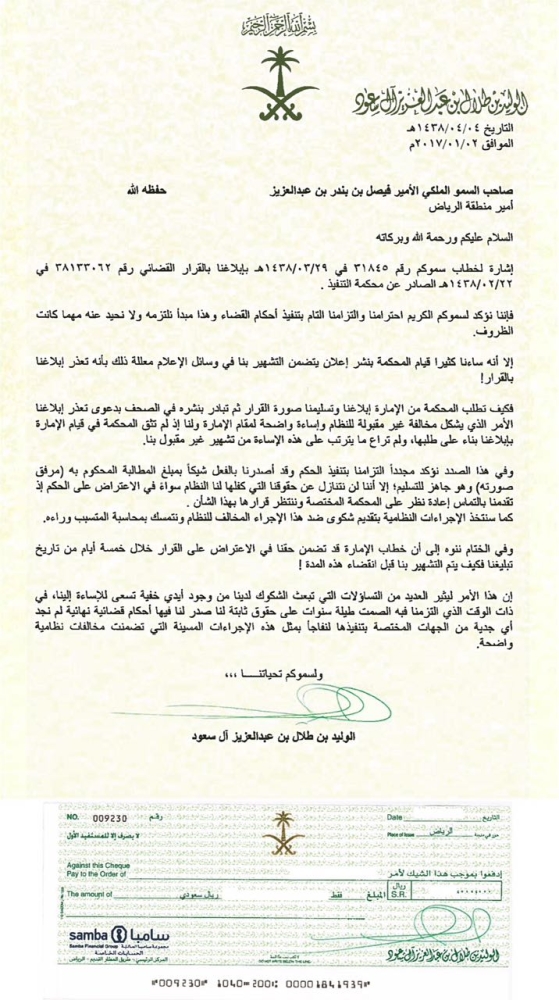 بسم الله الرحمن الرحيم
الوليد بن طلال بن عبدالعزيز آل سعود
التاريخ ١٤٣٨/٠٤/٠٤هـ
الموافق ٢٠١٧/٠١/٠٢م
صاحب السمو الملكي الأمير فيصل بن بندر بن عبدالعزيز حفظه الله
أمير منطقة الرياض
السلام عليكم ورحمة الله وبركاته
إشارة لخطاب سموكم رقم ٣١٨٤٥ في ١٤٣٨/٠٣/٢٩هـ بإبلاغنا بالقرار القضائي رقم ٣٨١٣٣٠٦٢ في
١٤٣٨/٠٢/٢٢هـ الصادر عن محكمة التنفيذ .
فإننا نؤكد لسموكم الكريم احترامنا والتزامنا التام بتنفيذ أحكام القضاء وهذا مبدأ نلتزمه ولا نحيد عنه مهما كانت
الظروف.
إلا أنه ساءنا كثيرا قيام المحكمة بنشر إعلان يتضمن التشهير بنا في وسائل الإعلام معللة ذلك بأنه تعذر إبلاغنا
بالقرار!
فكيف تطلب المحكمة من الإمارة إبلاغنا وتسليمنا صورة القرار ثم تبادر بنشره في الصحف بدعوى تعذر إبلاغنا
الأمر الذي يشكل مخالفة غير مقبولة للنظام وإساءة واضحة لمقام الإمارة ولنا إذ لم تثق المحكمة في قيام الإمارة
بإبلاغنا بناء على طلبها، ولم تراع ما يترتب على هذه الإساءة من تشهير غير مقبول بنا.
وفي هذا الصدد نؤكد مجدداً التزامنا بتنفيذ الحكم وقد أصدرنا بالفعل شيكاً بمبلغ المطالبة المحكوم به (مرفق
صورته) وهو جاهز للتسليم؛ إلا أننا لن نتنازل عن حقوقنا التي كفلها لنا النظام سواءً في الاعتراض على الحكم إذ
تقدمنا بالتماس إعادة نظر على المحكمة المختصة وننتظر قرارها بهذا الشأن .
كما سنتخذ الإجراءات النظامية بتقديم شكوى ضد هذا الإجراء المخالف للنظام ونتمسك بمحاسبة المتسبب وراءه.
وفي الختام ننوه إلى أن خطاب الإمارة قد تضمن حقنا في الاعتراض على القرار خلال خمسة أيام من تاريخ
تبليغنا فكيف يتم التشهير بنا قبل انقضاء هذه المدة !
إن هذا الأمر ليثير العديد من التساؤلات التي تبعث الشكوك لدينا من وجود أيدي خفية تسعى للإساءة إلينا، في
ذات الوقت الذي التزمنا فيه الصمت طيلة سنوات على حقوق ثابتة لنا صدر لنا فيها أحكام قضائية نهائية لم نجد
أي جدية من الجهات المختصة بتنفيذها لنفاجأ بمثل هذه الإجراءات المسيئة التي تضمنت مخالفات نظامية
واضحة.
ولسموكم تحياتنـــــا ،،،
الوليد بن طلال بن عبدالعزيز آل سعود
NO. 009230 رقم Date التاريخ
لا يصرف إلا للمستفيد الأول Place of Issue الرياض
Against this Cheque
Pay to the Order of إدفعوا بموجب هذا الشيك لأمر
The amount of ريال سعودي فقط المبلغ ريال S.R.
samba سامبا
Samba Financial Group مجموعة سامبا المالية
الحسابات الخاصة
المركز الرئيسي - طريق المطار القديم - الرياض
DO NOT WRITE BELOW THIS LINE
الوليد بن طلال بن عبدالعزيز آل سعود
⑈009230⑈ 1040⑉200⑆ 00001841939⑈